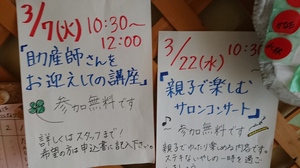 3/7(火) 10:30〜
12:00
「助産師さんを
お迎えしての講座」
参加無料です
詳しくはスタッフまで!
希望の方は申込書に記入下さい。
3/22(水) 10:30
「親子で楽しむ
サロンコンサート」
参加無料です
親子でゆったり楽しめる内容です。
ステキないやしの一時を過ご